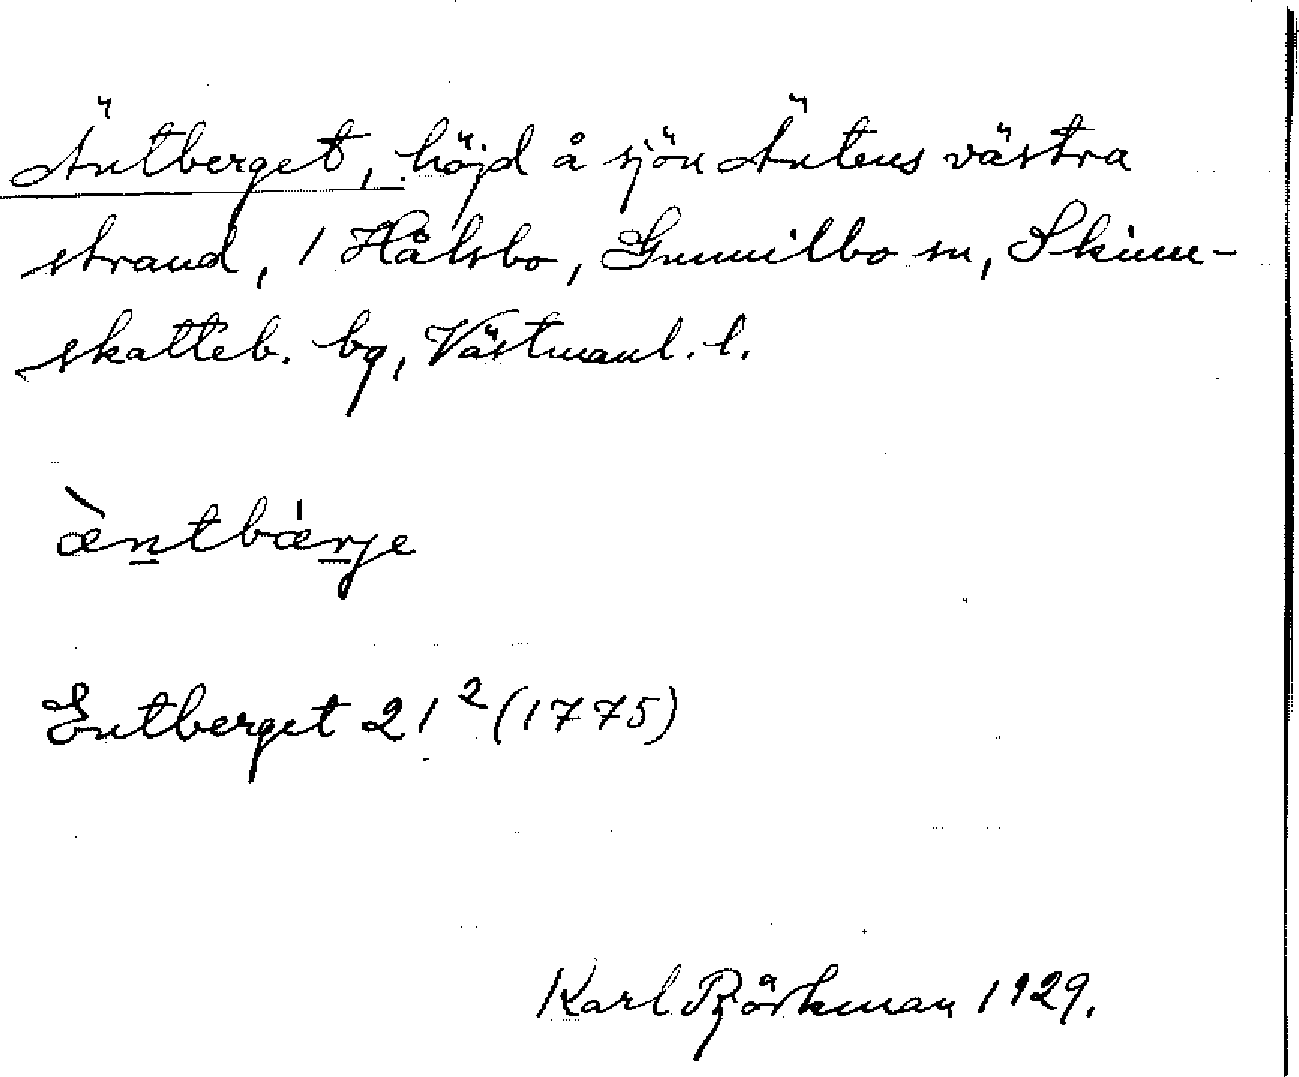 Äntberget, höjd å sjön Äntens västra
strand, 1 Hålsbo, Gunnilbo sn, Skinn-
skatteb. bg, Västmanl. l.
æ̀ntbærje
Entberget 21² (1775)
Karl Björkman 1929.